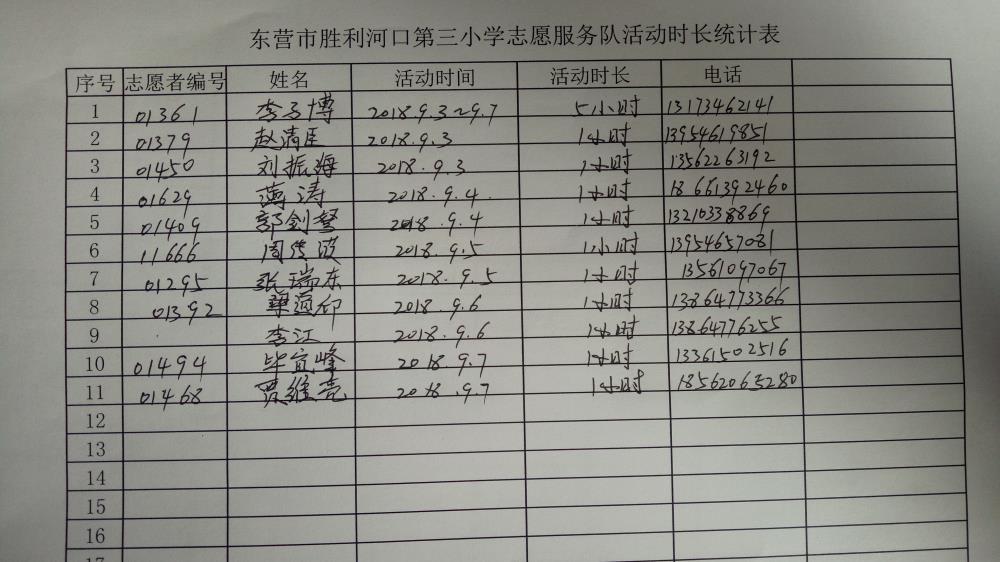 东营市胜利河口第三小学志愿服务队活动时长统计表
序号 志愿者编号 姓名 活动时间 活动时长 电话
1 01361 李子博 2018.9.3~9.7 5小时 13173462141
2 01379 赵清臣 2018.9.3 1小时 13954619851
3 01450 刘振海 2018.9.3 1小时 13562263192
4 01629 涛 2018.9.4. 1小时 18661392460
5 01409 郭剑 2018.9.4 1小时 13210338869
6 11666 周 2018.9.5 1小时 13954657081
7 01295 张瑞东 2018.9.5 1小时 13561097067
8 01392 2018.9.6 1小时 13864773366
9 李江 2018.9.6 1小时 13864776255
10 01494 毕宜峰 2018.9.7 1小时 13361502516
11 01468 贾维亮 2018.9.7 1小时 18562065280
12
13
14
15
16